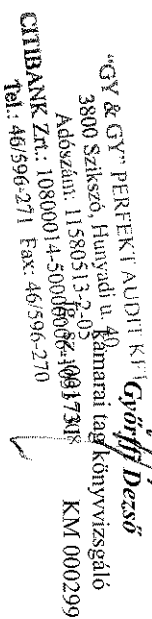 "GY & GY" PERFEKT AUDIT KFT
3800 Szikszó, Hunyadi u. 40
Adószám: 11580513-2-05
CITIBANK Zrt.: 10800014-50000006-
Tel.: 46/596-271 Fax: 46/596-270
Győrffi Dezső
kamarai tag könyvvizsgáló
KM 000299